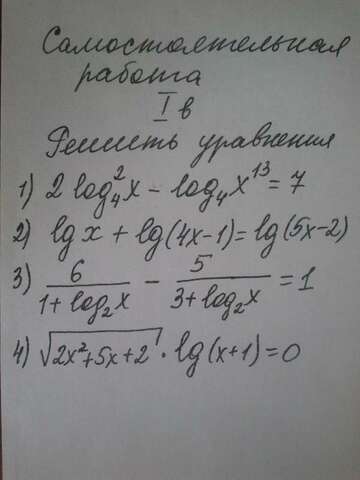 Самостоятельная
работа
I в
Решить уравнения
1) 2 log₄²x − log₄x¹³ = 7
2) lg x + lg(4x−1) = lg(5x−2)
3) 6/(1+log₂x) − 5/(3+log₂x) = 1
4) √(2x²+5x+2) · lg(x+1) = 0